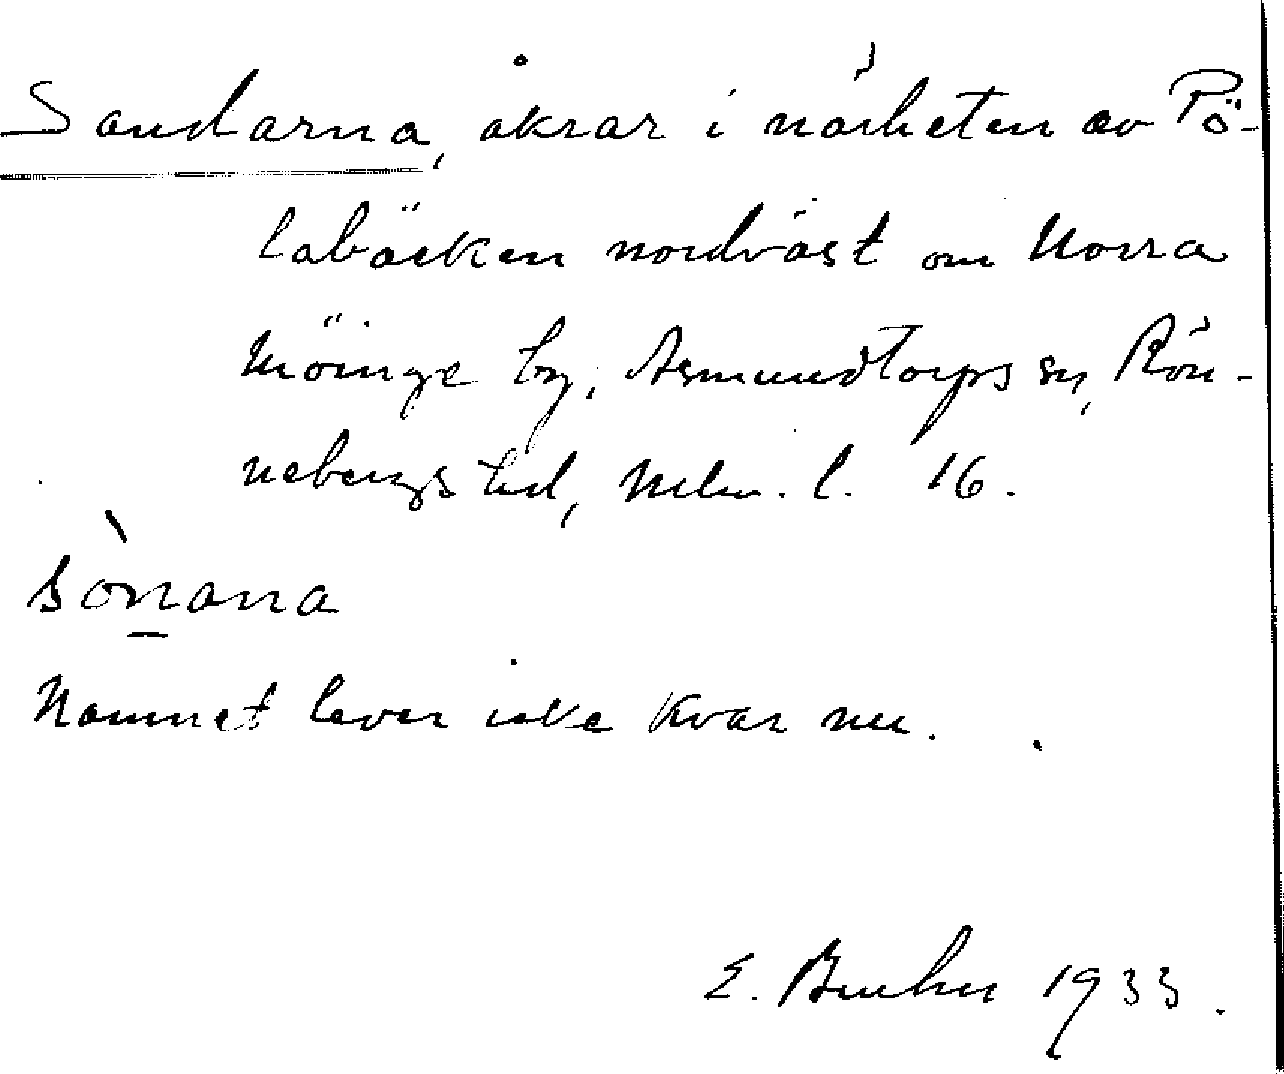 Sandarna, åkrar i närheten av Pö-
labäcken nordväst om Norra
Möinge by, Asmundtorps sn, Rön-
nebergs hd, Mlm. l. 16.
sònana
Namnet lever icke kvar nu.
E. Bruhn 1933.